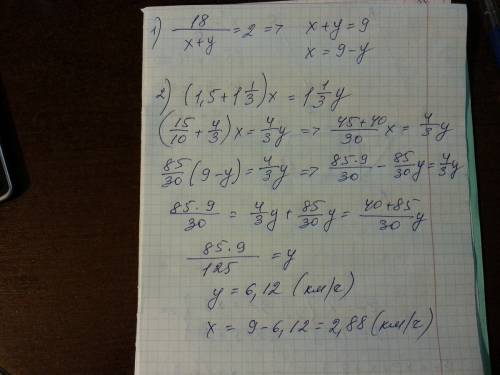 1) 18/(x+y) = 2 => x+y = 9
x = 9-y
2) (1,5+1 1/3)x = 1 1/3 y
(15/10 + 4/3)x = 4/3 y => (45+40)/30 x = 4/3 y
85/30 (9-y) = 4/3 y => 85·9/30 - 85/30 y = 4/3 y
85·9/30 = 4/3 y + 85/30 y = (40+85)/30 y
85·9/125 = y
y = 6,12 (км/г)
x = 9-6,12 = 2,88 (км/г)